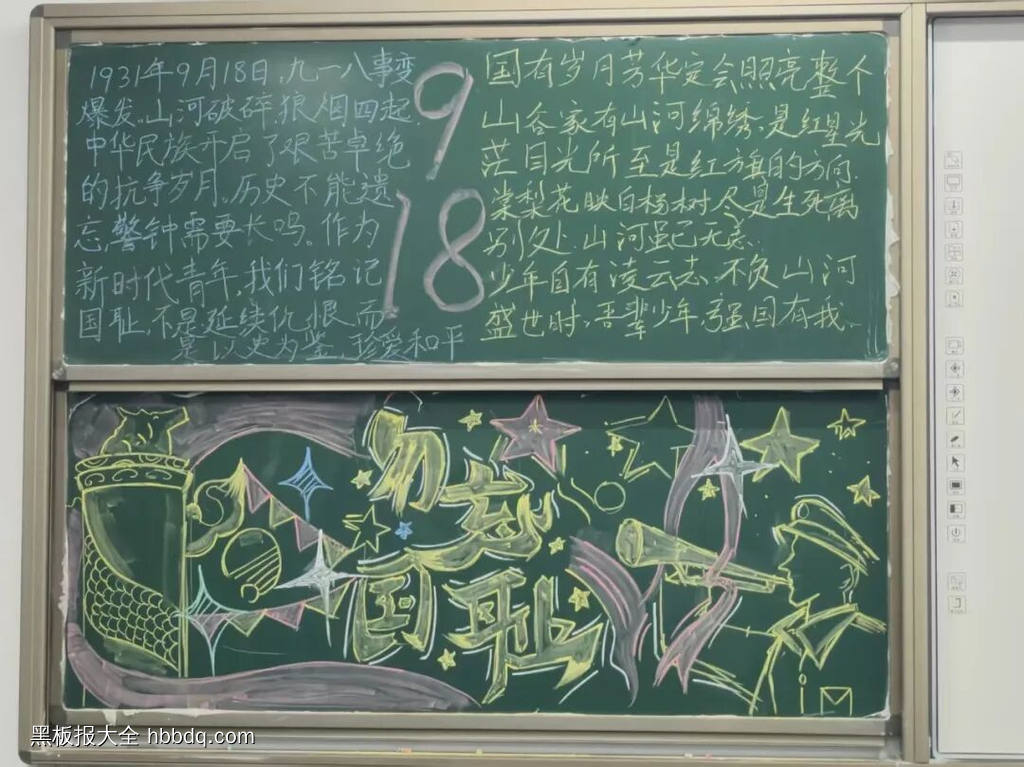 1931年9月18日,九一八事变
爆发,山河破碎,狼烟四起,
中华民族开启了艰苦卓绝
的抗争岁月。历史不能遗
忘,警钟需要长鸣。作为
新时代青年,我们铭记
国耻,不是延续仇恨,而
是以史为鉴,珍爱和平
9
18
国有岁月芳华定会照亮整个
山谷家有山河绵绣,是红星光
茫目光所至是红旗的方向.
棠梨花映白杨树,尽是生死离
别处,山河虽已无恙,
少年自有凌云志,不负山河
盛世时,吾辈少年,强国有我。
勿忘
国耻
黑板报大全 hbbdq.com